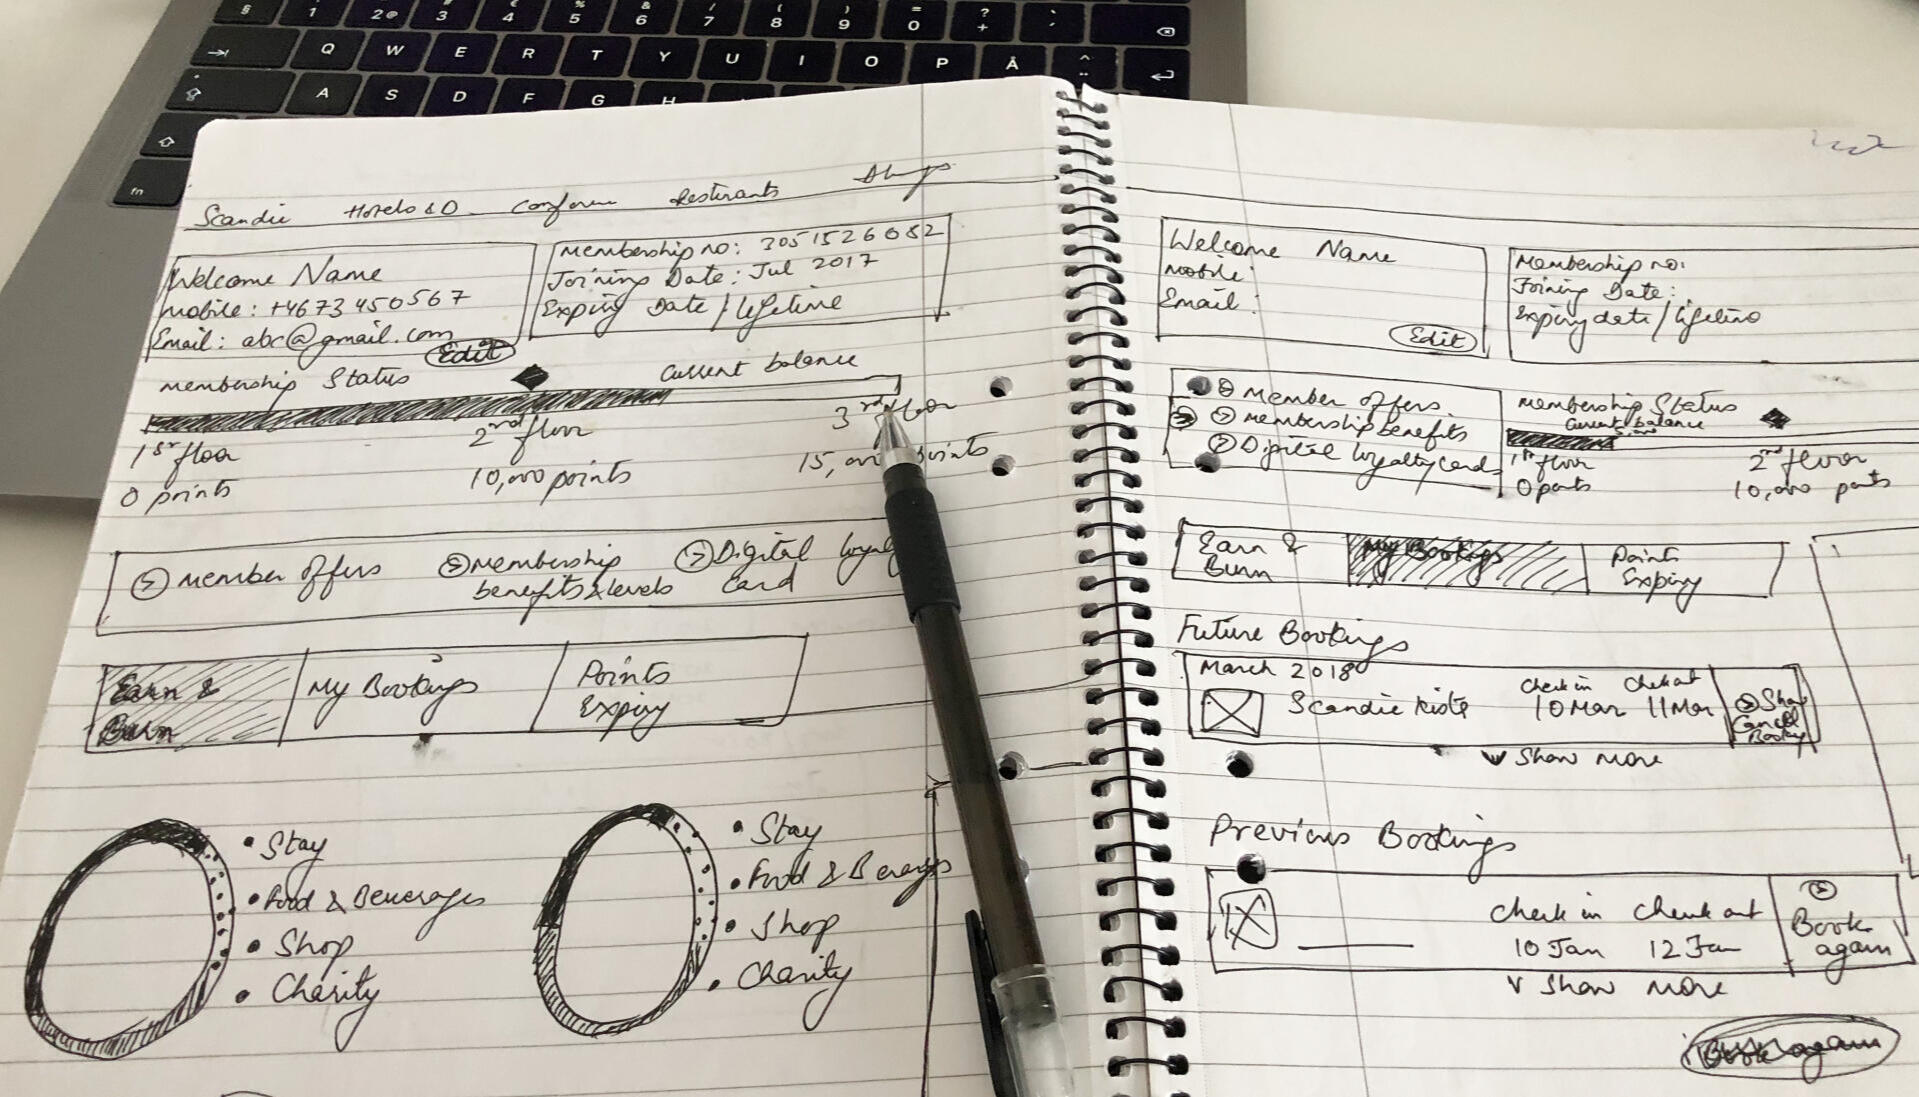 § 1 2 @ 3 4 € 5 % 6 & 7 / 8 ( 9 ) 0 = + ?
Q W E R T Y U I O P Å
A S D F G H
fn
Scandic Hotels Restirants
Welcome Name
Mobile: +4673450567
Email: abc@gmail.com
Edit
Membership no: 3051526082
Joining Date: Jul 2017
Expiry Date / Lifetime
Membership Status
Current balance
1st floor 2nd floor 3rd floor
0 points 10,000 points 15,000 points
Member offers
Membership
benefits & levels
Digital loyal
Card
Earn &
Burn
My Bookings
Points
Expiry
• Stay
• Food & Beverages
• Shop
• Charity
• Stay
• Food & Beverages
• Shop
• Charity
Welcome Name
Mobile:
Email:
Edit
Membership no:
Joining Date:
Expiry date / Lifetime
Member offers
Membership benefits
Digital loyalty card
Membership Status
Current balance
1st floor 2nd floor
0 points 10,000 points
Earn &
Burn
My Bookings
Points
Expiry
Future Bookings
March 2018
Scandic Check in Check out
10 Mar 11 Mar
Cancel
Booking
Show more
Previous Bookings
Check in Check out
10 Jan 12 Jan
Book
again
Show more
Book again